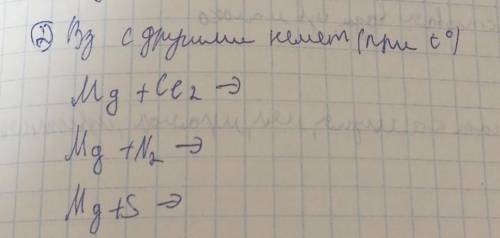 ② Вз с другими немет (при t°)
Mg + Cl2 →
Mg + N2 →
Mg + S →